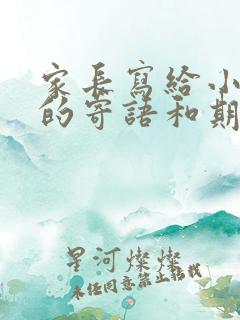 家長寫給小
的寄語和期
星河燦燦
未經同意禁止搭載